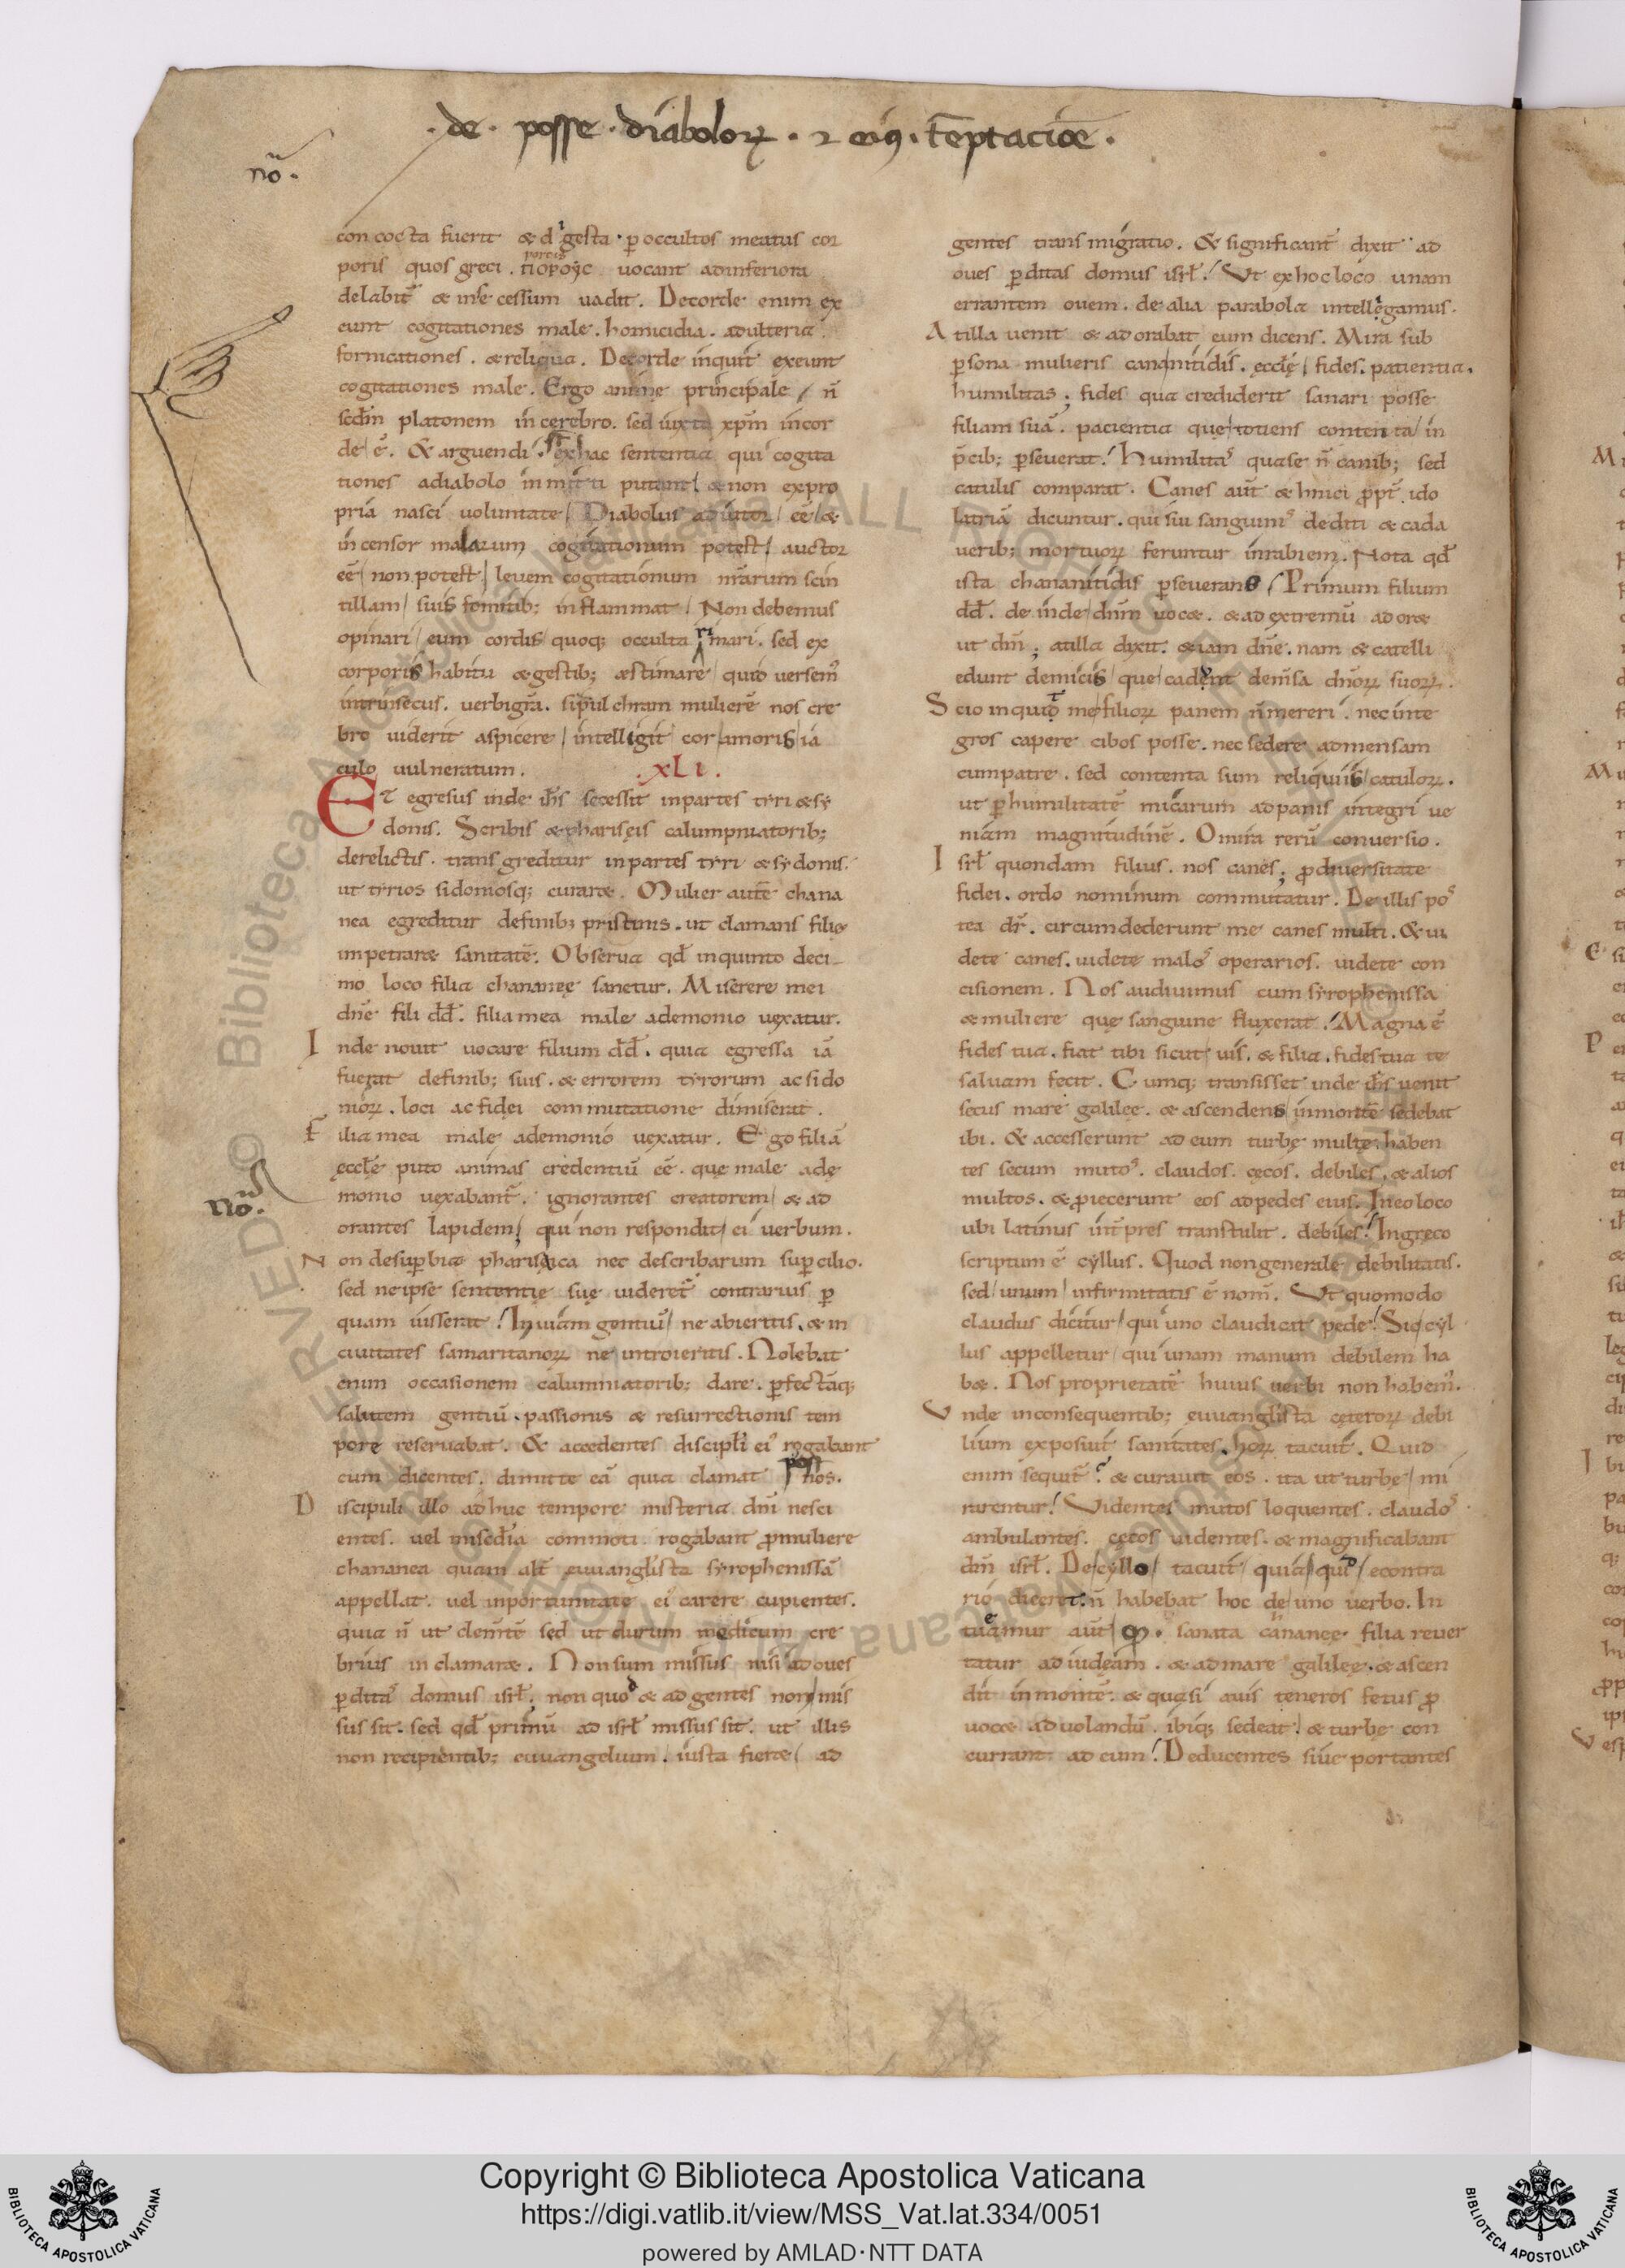 · de · posse · diabolorꝝ · ⁊ eiꝰ · t̄eptacio̅e ·
no̅ ·
con cocta fuerit & digesta · ꝑ occultos meatus cor
poris quos greci . ΠΟΡΟΥC uocant adinferiora
delabit᷑ & inse cessum uadit . Decorde enim ex
eunt cogitationes male . homicidia . adulteria .
fornicationes . & reliqua . Decorde inquit exeunt
cogitationes male . Ergo anime̜ principale / n̅
scd̅m platonem in cerebro . sed iuxta xp̅m in cor
de / e̅ . & arguendi . st̅ ex hac sententia qui cogita
tiones adiabolo inmitti putant / & non expro
pria nasci uoluntate / Diabolus adiutor / ee̅ / &
incensor malarum cogitationum potest / auctor
ee̅ / non potest / leuem cogitationum nr̅arum scin
tillam / suis fomitib; inflammat / Non debemus
opinari / eum cordis quoq; occulta rimari . sed ex
corporis habitu & gestib; æstimare / quid uersem᷒
intrinsecus . uerbigr̅a . si pulchram muliere̅ nos cre
bro uiderit aspicere / intelligit cor / amoris / ia
culo uulneratum .
. XLI .
ET egresus inde ih̅s secessit inpartes tyri & sy
donis . Scribis & pharise̜is calumpniatorib;
derelictis . transgreditur inpartes tyri & sydonis .
ut tyrios sidoniosq; curaret . Mulier aute̅ chana
nea egreditur definib; pristinis . ut clamans filie̜
impetraret sanitate̅ . Obserua qd̅ inquinto deci
mo loco filia chananee̜ sanetur . Miserere mei
dn̅e fili dd̅ . filia mea male ademonio uexatur .
Inde nouit uocare filium dd̅ . quia egressa ia̅
fuerat definib; suis . & errorem tyrorum ac sido
niorꝝ . loci ac fidei commutatione dimiserat .
Filia mea male ademonio uexatur . Ego filia̅
e̜ccl̅e̜ puto animas credentiu̅ ee̅ . que̜ male ade̜
No̅ .
monio uexabant᷑ . ignorantes creatorem / & ad
orantes lapidem ; qui non respondit / ei uerbum .
Non desuꝑbia pharisaica nec describarum suꝑcilio .
sed neipse sententie̜ sue̜ uideret᷑ contrarius ꝑ
quam iusserat ! In uiam gentiu̅ / ne abieritis . & in
ciuitates samaritanorꝝ ne introieritis . Nolebat
enim occasionem calumniatorib; dare . ꝑfecta̅q;
salutem gentiu̅ . passionis & resurrectionis tem
pore reseruabat . & accedentes discipl̅i ei᷒ rogabant
eum dicentes . dimitte ea̅ quia clamat post nos .
Discipuli illo adhuc tempore misteria dn̅i nesci
entes . uel miscd̅ia commoti rogabant ꝓmuliere
chananea quam alt̅ euuanglista syrophenissa̅
appellat . uel inportunitate ei carere cupientes .
quia n̅ ut cleme̅te̅ sed ut durum medicum cre
brius inclamaret . Non sum missus nisi ad oues
ꝑdita᷒ domus isrl̅ ; non quod & ad gentes non mis
sus sit . sed qd̅ primu̅ ad isrl̅ missus sit . ut illis
non recipientib; euuangelium . iusta fieret / ad
gentes transmigratio . & significant᷑ dixit ad
oues ꝑditas domus isrl̅ ! Ut ex hoc loco unam
errantem ouem . de alia parabola intellegamus .
At illa uenit & adorabat eum dicens . Mira sub
ꝑsona mulieris cananitidis . e̜ccl̅e̜ / fides . patientia .
humilitas ; fides qua crediderit sanari posse
filiam sua̅ . pacientia que̜ totiens contenta / in
p̅cib; ꝑseuerat ! Humilita᷒ quase n̅ canib; sed
catulis comparat . Canes aut̅ & hnici ꝓpt̅ ido
latria̅ dicuntur . qui siu sanguini᷒ dediti & cada
uerib; mortuorꝝ feruntur inrabiem . Nota qd̅
ista chananitidis ꝑseuerans / Primum filium
dd̅ . deinde / dn̅m uocet . & ad extremu̅ adoret
ut dm̅ ; at illa dixit . etiam dn̅e . nam & catelli
edunt demicis / que / cadunt dem̅sa dn̅orꝝ suorꝝ .
Scio inquid me filiorꝝ panem n̅ mereri . nec inte
gros capere cibos posse . nec sedere admensam
cumpatre . sed contenta sum reliquiis / catulorꝝ .
ut ꝑ humilitate̅ micarum ad panis integri ue
niam magnitudine̅ . O mira reru̅ conuersio .
Isrl̅ quondam filius . nos canes ; ꝓdiuersitate
fidei . ordo nominum commutatur . De illis po᷒
tea dr̅ . circumdederunt me canes multi . & ui
dete canes . uidete malo᷒ operarios . uidete con
cisionem . Nos audiuimus cum syrophenissa
& muliere que̜ sanguine fluxerat ! Magna e̅
fides tua . fiat tibi sicut uis . & filia . fides tua te
saluam fecit . Cumq; transisset inde ih̅s uenit
secus mare galilee̜ . & ascendens inmonte̅ sedebat
ibi . & accesserunt ad eum turbe̜ multe̜ haben
tes secum muto᷒ . claudos . ce̜cos . debiles . & alios
multos . & ꝓiecerunt eos ad pedes eius . In eo loco
ubi latinus int̅pres transtulit . debiles ! In greco
scriptum e̅ cyllus . Quod non generale debilitatis .
sed / unum / infirmitatis e̅ nom̅ . Ut quomodo
claudus dicitur / qui uno claudicat pede ! Sic / cyl
lus appelletur / qui unam manum debilem ha
bet . Nos proprietate̅ huius uerbi non habem᷒ .
Unde inconsequentib; euuanglista ce̜terorꝝ debi
lium exposuit sanitates . horꝝ tacuit . Quid
enim sequit᷑ ? & curauit eos . ita ut turbe̜ / mi
rarentur ! Videntes mutos loquentes . claudo᷒
ambulantes . ce̜cos uidentes . & magnificabant
dm̅ isrl̅ . De / cyllo / tacuit / quia / quid / econtra
rio diceret . n̅ habebat hoc de / uno uerbo . In
tueamur aut̅ / . sanata cananee̜ filia reuer
tatur ad iude̜am . & ad mare galilee̜ . & ascen
dit inmonte̅ . & quasi auis teneros fetus ꝓ
uocet ad uolandu̅ . ibiq; sedeat / & turbe̜ con
currant ad eum ! Deducentes siue portantes
Copyright © Biblioteca Apostolica Vaticana
https://digi.vatlib.it/view/MSS_Vat.lat.334/0051
powered by AMLAD·NTT DATA